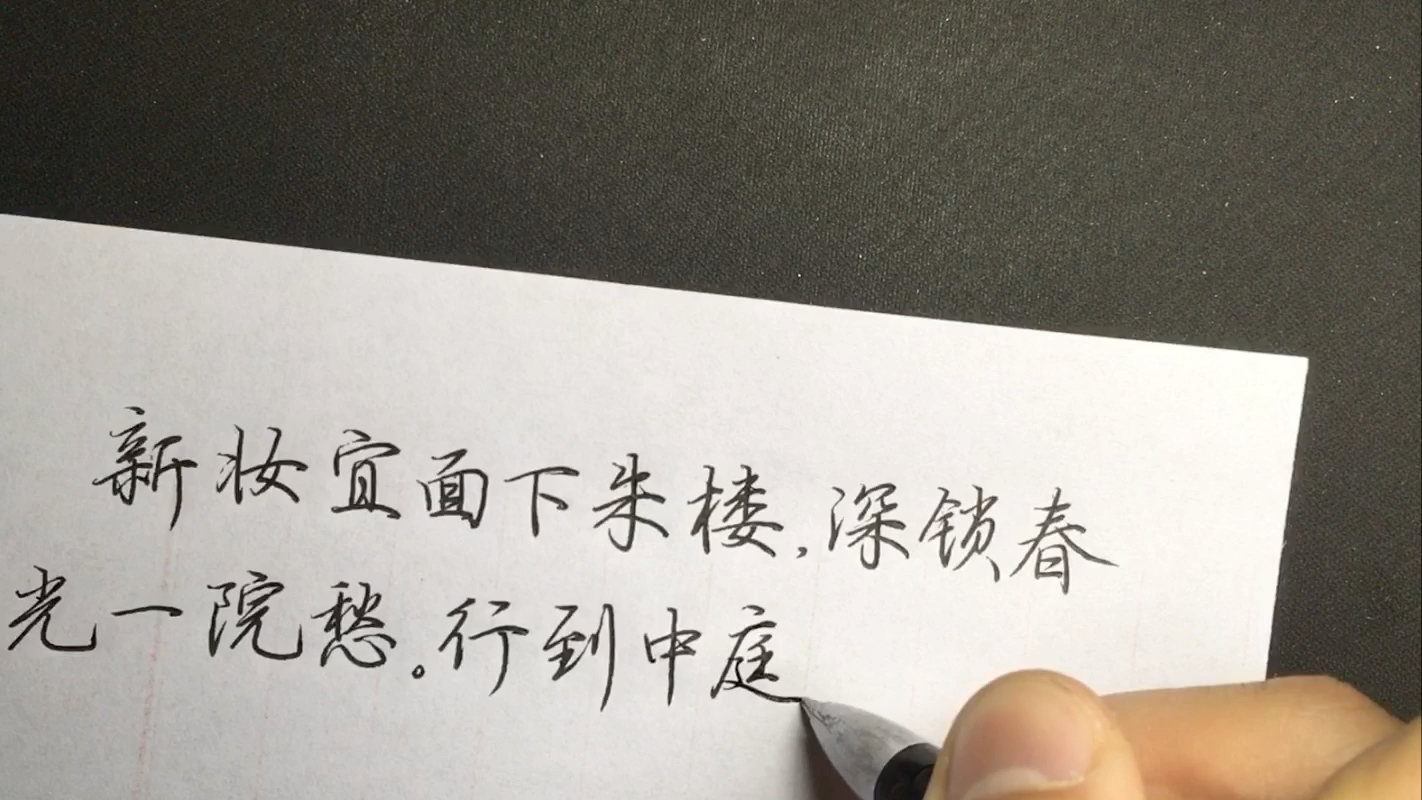 新妆宜面下朱楼,深锁春
光一院愁。行到中庭